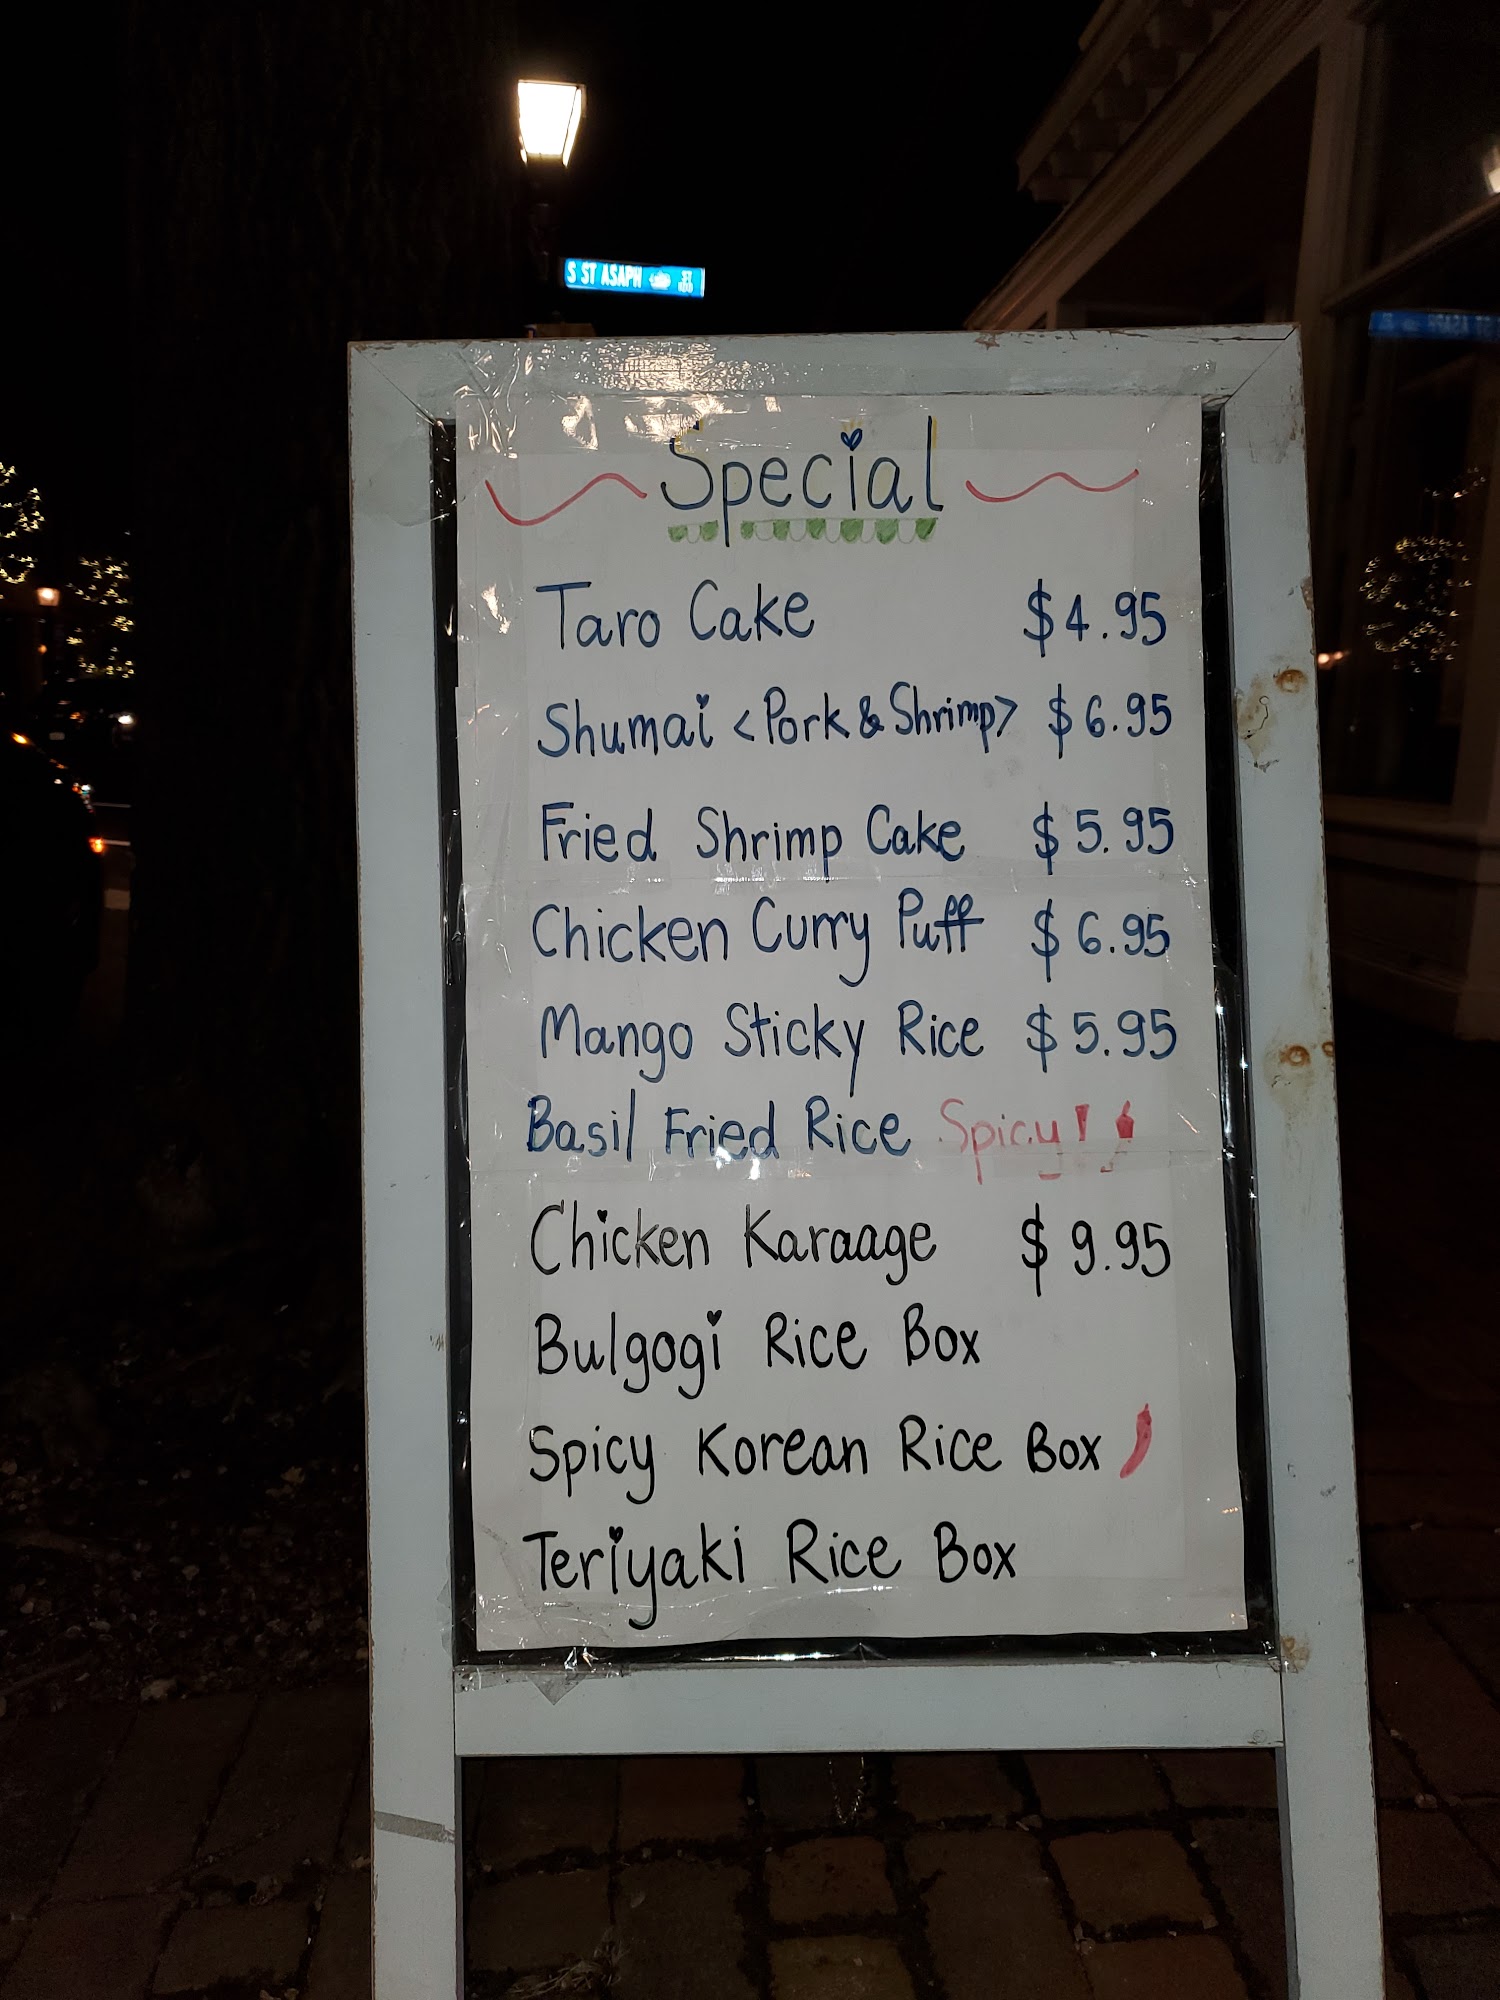 S ST ASAPH ST
Special
Taro Cake $4.95
Shumai <Pork & Shrimp> $6.95
Fried Shrimp Cake $5.95
Chicken Curry Puff $6.95
Mango Sticky Rice $5.95
Basil Fried Rice Spicy!
Chicken Karaage $9.95
Bulgogi Rice Box
Spicy Korean Rice Box
Teriyaki Rice Box